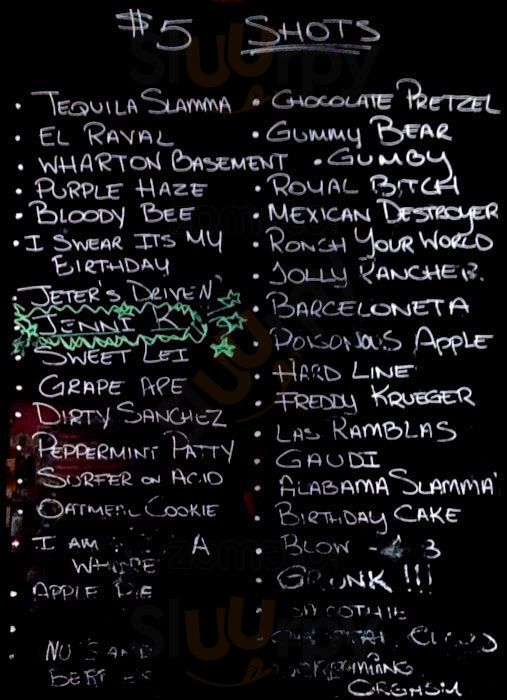 $5 SHOTS
• TEQUILA SLAMMA
• EL RAVAL
• WHARTON BASEMENT
• PURPLE HAZE
• BLOODY BEE
• I SWEAR ITS MY
BIRTHDAY
• JETER'S DRIVEN
JENNI K
• SWEET LEI
• GRAPE APE
• DIRTY SANCHEZ
• PEPPERMINT PATTY
• SURFER ON ACID
• OATMEAL COOKIE
• I AM A
• APPLE
• CHOCOLATE PRETZEL
• GUMMY BEAR
• GUMBY
• ROYAL BITCH
• MEXICAN DESTROYER
• RONCH YOUR WORLD
• JOLLY RANCHER
• BARCELONETA
• POISONOUS APPLE
• HARD LINE
• FREDDY KRUEGER
• LAS RAMBLAS
• GAUDI
• ALABAMA SLAMMA
• BIRTHDAY CAKE
• BLOW
• GRUNK !!!
Sluurpy
zomato
Sluurpy